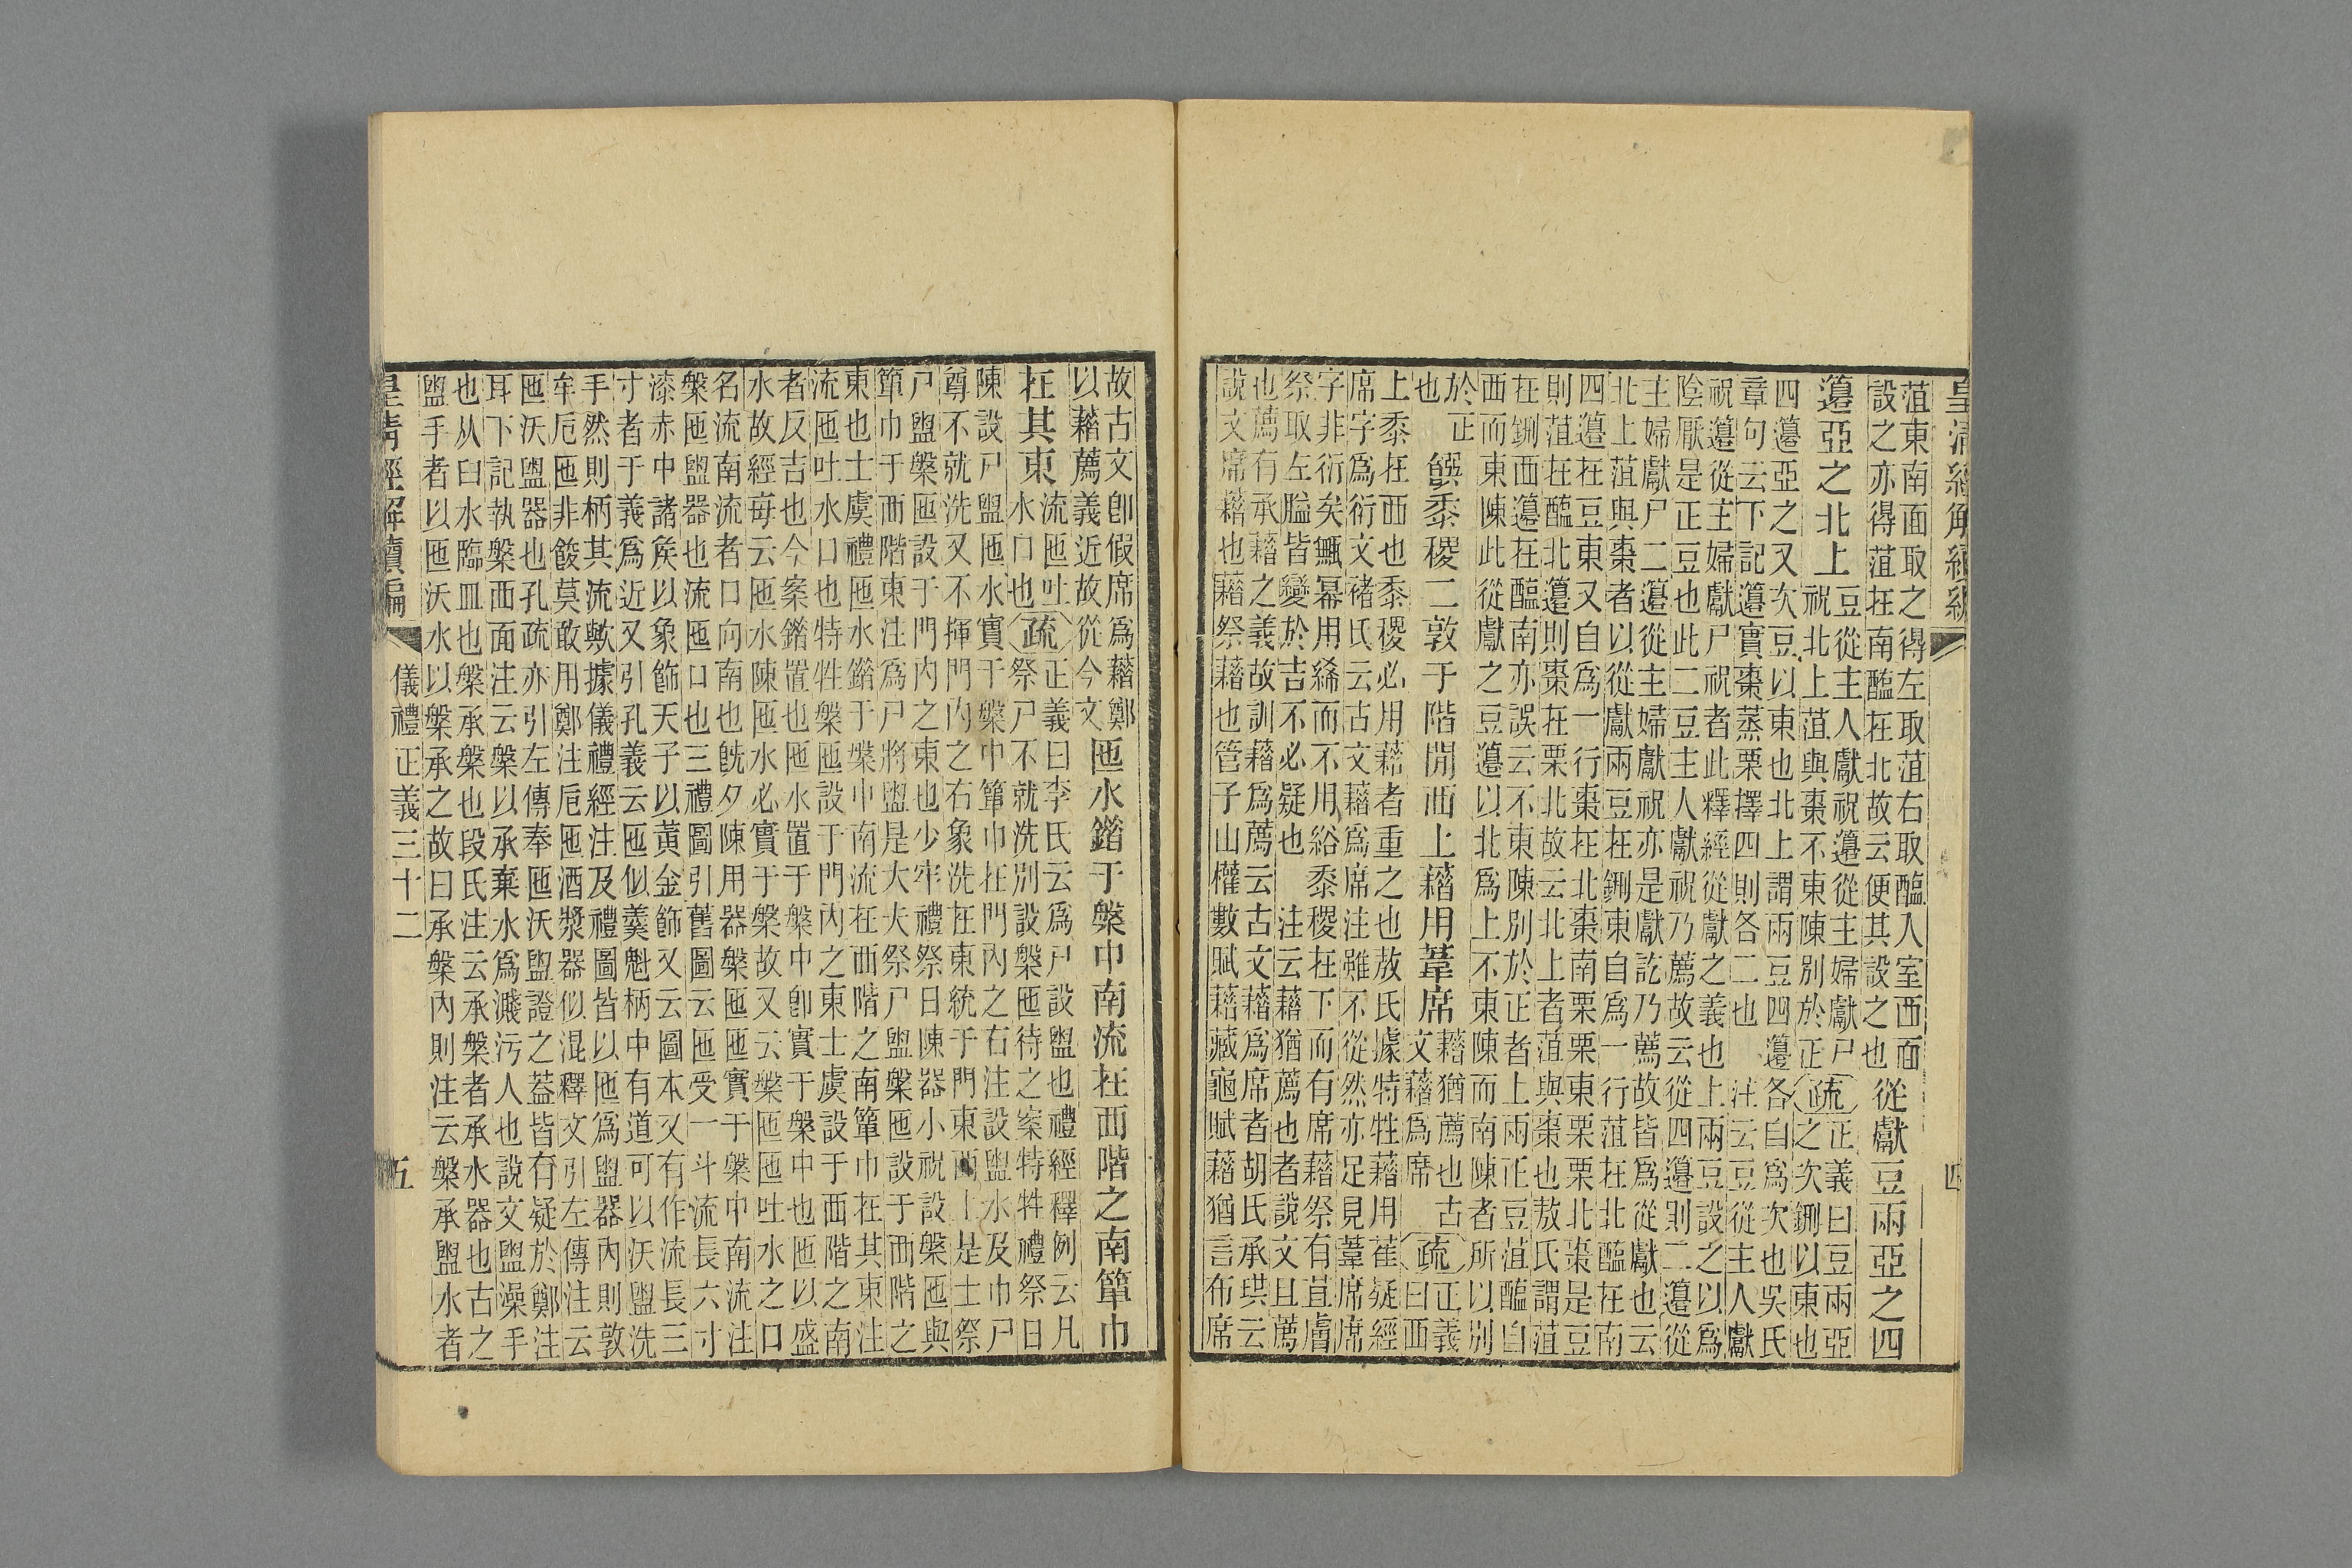 皇清經解續編
四
菹東南面取之得左取菹右取醢人室西面
設之亦得菹在南醢在北故云便其設之也
從獻豆兩亞之四
籩亞之北上
豆從主人獻祝籩從主婦獻尸
祝北上菹與棗不東陳別於正
疏
正義曰豆兩亞
之次鉶以東也
四籩亞之又次豆以東也北上謂兩豆四籩各自爲次也吳氏
章句云下記籩實棗蒸栗擇四則各二也 注云豆從主人獻
祝籩從主婦獻尸祝者此釋經從獻之義也 上兩豆設之以爲
陰厭是正豆也此二豆主人獻祝乃薦故云從四籩則二籩從
主婦獻尸二籩從主婦獻祝亦是獻訖乃薦故皆爲從獻也云
北上菹與棗者以從獻兩豆在鉶東自爲一行菹在北醢在南
四籩在豆東又自爲一行棗在北棗南栗栗東栗栗北棗是豆
則菹在醢北籩則棗在栗北故云北上者菹與棗也敖氏謂菹
在鉶西籩在醢南亦誤云不東陳別於正者上兩正豆菹醢自
西而東陳此從獻之豆籩以北爲上不東陳而南陳者所以別
於正
也
饌黍稷二敦于階閒西上藉用葦席
藉猶薦也 古
文藉爲席
疏
正義
曰西
上黍在西也黍稷必用藉者重之也敖氏據特牲藉用萑疑經
席字爲衍文褚氏云古文藉爲席注雖不從然亦足見葦席席
字非衍矣甒幂用絺而不用綌黍稷在下而有席藉祭有苴膚
祭取左膉皆變於吉不必疑也 注云藉猶薦也者說文且薦
也薦有承藉之義故訓藉爲薦云古文藉爲席者胡氏承珙云
說文席藉也藉祭藉也管子山權數賦藉藏龜賦藉猶言布席
故古文卽假席爲藉鄭
以藉薦義近故從今文
匜水錯于槃中南流在西階之南簞巾
在其東
流匜吐
水口也
疏
正義曰李氏云爲尸設盥也禮經釋例云凡
祭尸不就洗別設槃匜待之案特牲禮祭日
陳設尸盥匜水實于槃中簞巾在門內之右注設盥水及巾尸
尊不就洗又不揮門內之右象洗在東統于門東西上是士祭
尸盥槃匜設于門內之東也少牢禮祭日陳器小祝設槃匜與
簞巾于西階東注爲尸將盥是大夫祭尸盥槃匜設于西階之
東也士虞禮匜水錯于槃中南流在西階之南簞巾在其東注
流匜吐水口也特牲槃匜設于門內之東士虞設于西階之南
者反吉也今案錯置也匜水置于槃中卽實于槃中也匜以盛
水故經每云匜水陳匜水必實于槃故又云槃匜匜吐水之口
名流南流者口向南也旣夕陳用器槃匜匜實于槃中南流注
槃匜盥器也流匜口也三禮圖引舊圖云匜受一斗流長六寸
漆赤中諸侯以象飾天子以黃金飾又云圖本又有作流長三
寸者于義爲近又引孔義云匜似羹魁柄中有道可以沃盥洗
手然則柄其流歟據儀禮經注及禮圖皆以匜爲盥器內則敦
牟卮匜非餕莫敢用鄭注卮匜酒漿器似混釋文引左傳注云
匜沃盥器也孔疏亦引左傳奉匜沃盥證之蓋皆有疑於鄭注
耳下記執槃西面注云槃以承棄水爲濺污人也說文盥澡手
也从臼水臨皿也槃承槃也段氏注云承槃者承水器也古之
盥手者以匜沃水以槃承之故曰承槃內則注云槃承盥水者
皇清經解續編
儀禮正義三十二
五